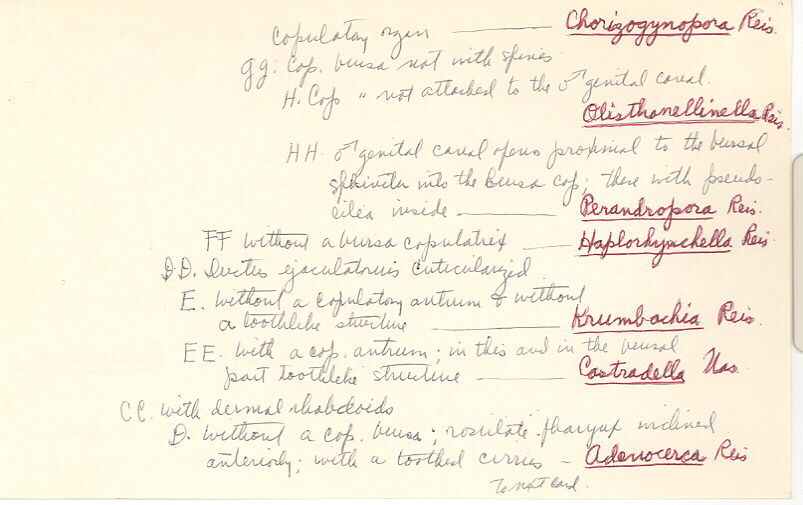 copulatory organ — Chorizogynopora Reis.
gg. Cop. bursa not with spines
H. Cop " not attached to the ♂ genital canal.
Olisthanellinella Reis.
HH. ♂ genital canal opens proximal to the bursal
sphincter into the bursa cop; there with pseudo-
cilia inside — Perandropora Reis.
FF without a bursa copulatrix — Haplorhynchella Reis.
DD. Ductus ejaculatorius cuticularized
E. Without a copulatory antrum & without
a toothlike structure — Krumbachia Reis.
EE. With a cop. antrum; in this and in the bursal
part toothlike structure — Castradella Nas.
CC. with dermal rhabdoids
D. Without a cop. bursa; rosulate pharynx inclined
anteriorly; with a toothed cirrus – Adenocerca Reis
To next card.